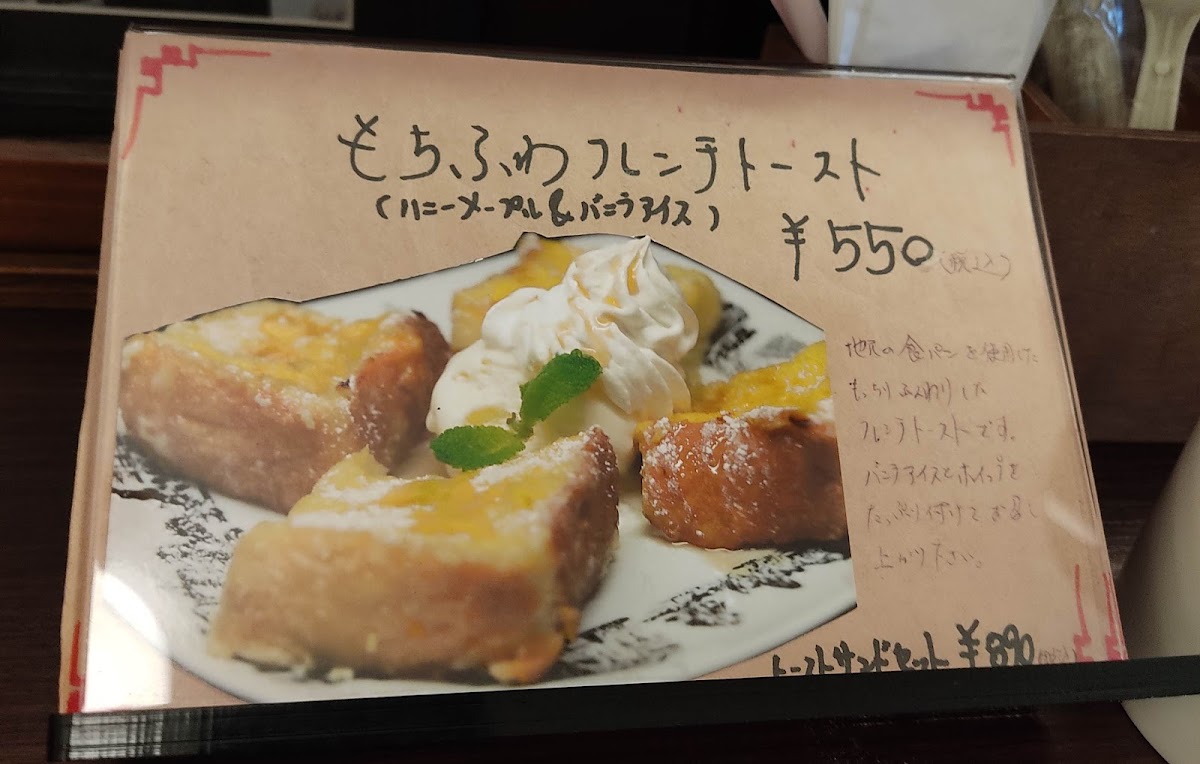 もちふわフレンチトースト
(ハニーメープル&バニラアイス)
¥550(税込)
地元の食パンを使用した
もっちりふんわりした
フレンチトーストです。
バニラアイスとホイップを
たっぷり付けてお召し
上がり下さい。
トーストサンドセット ¥890